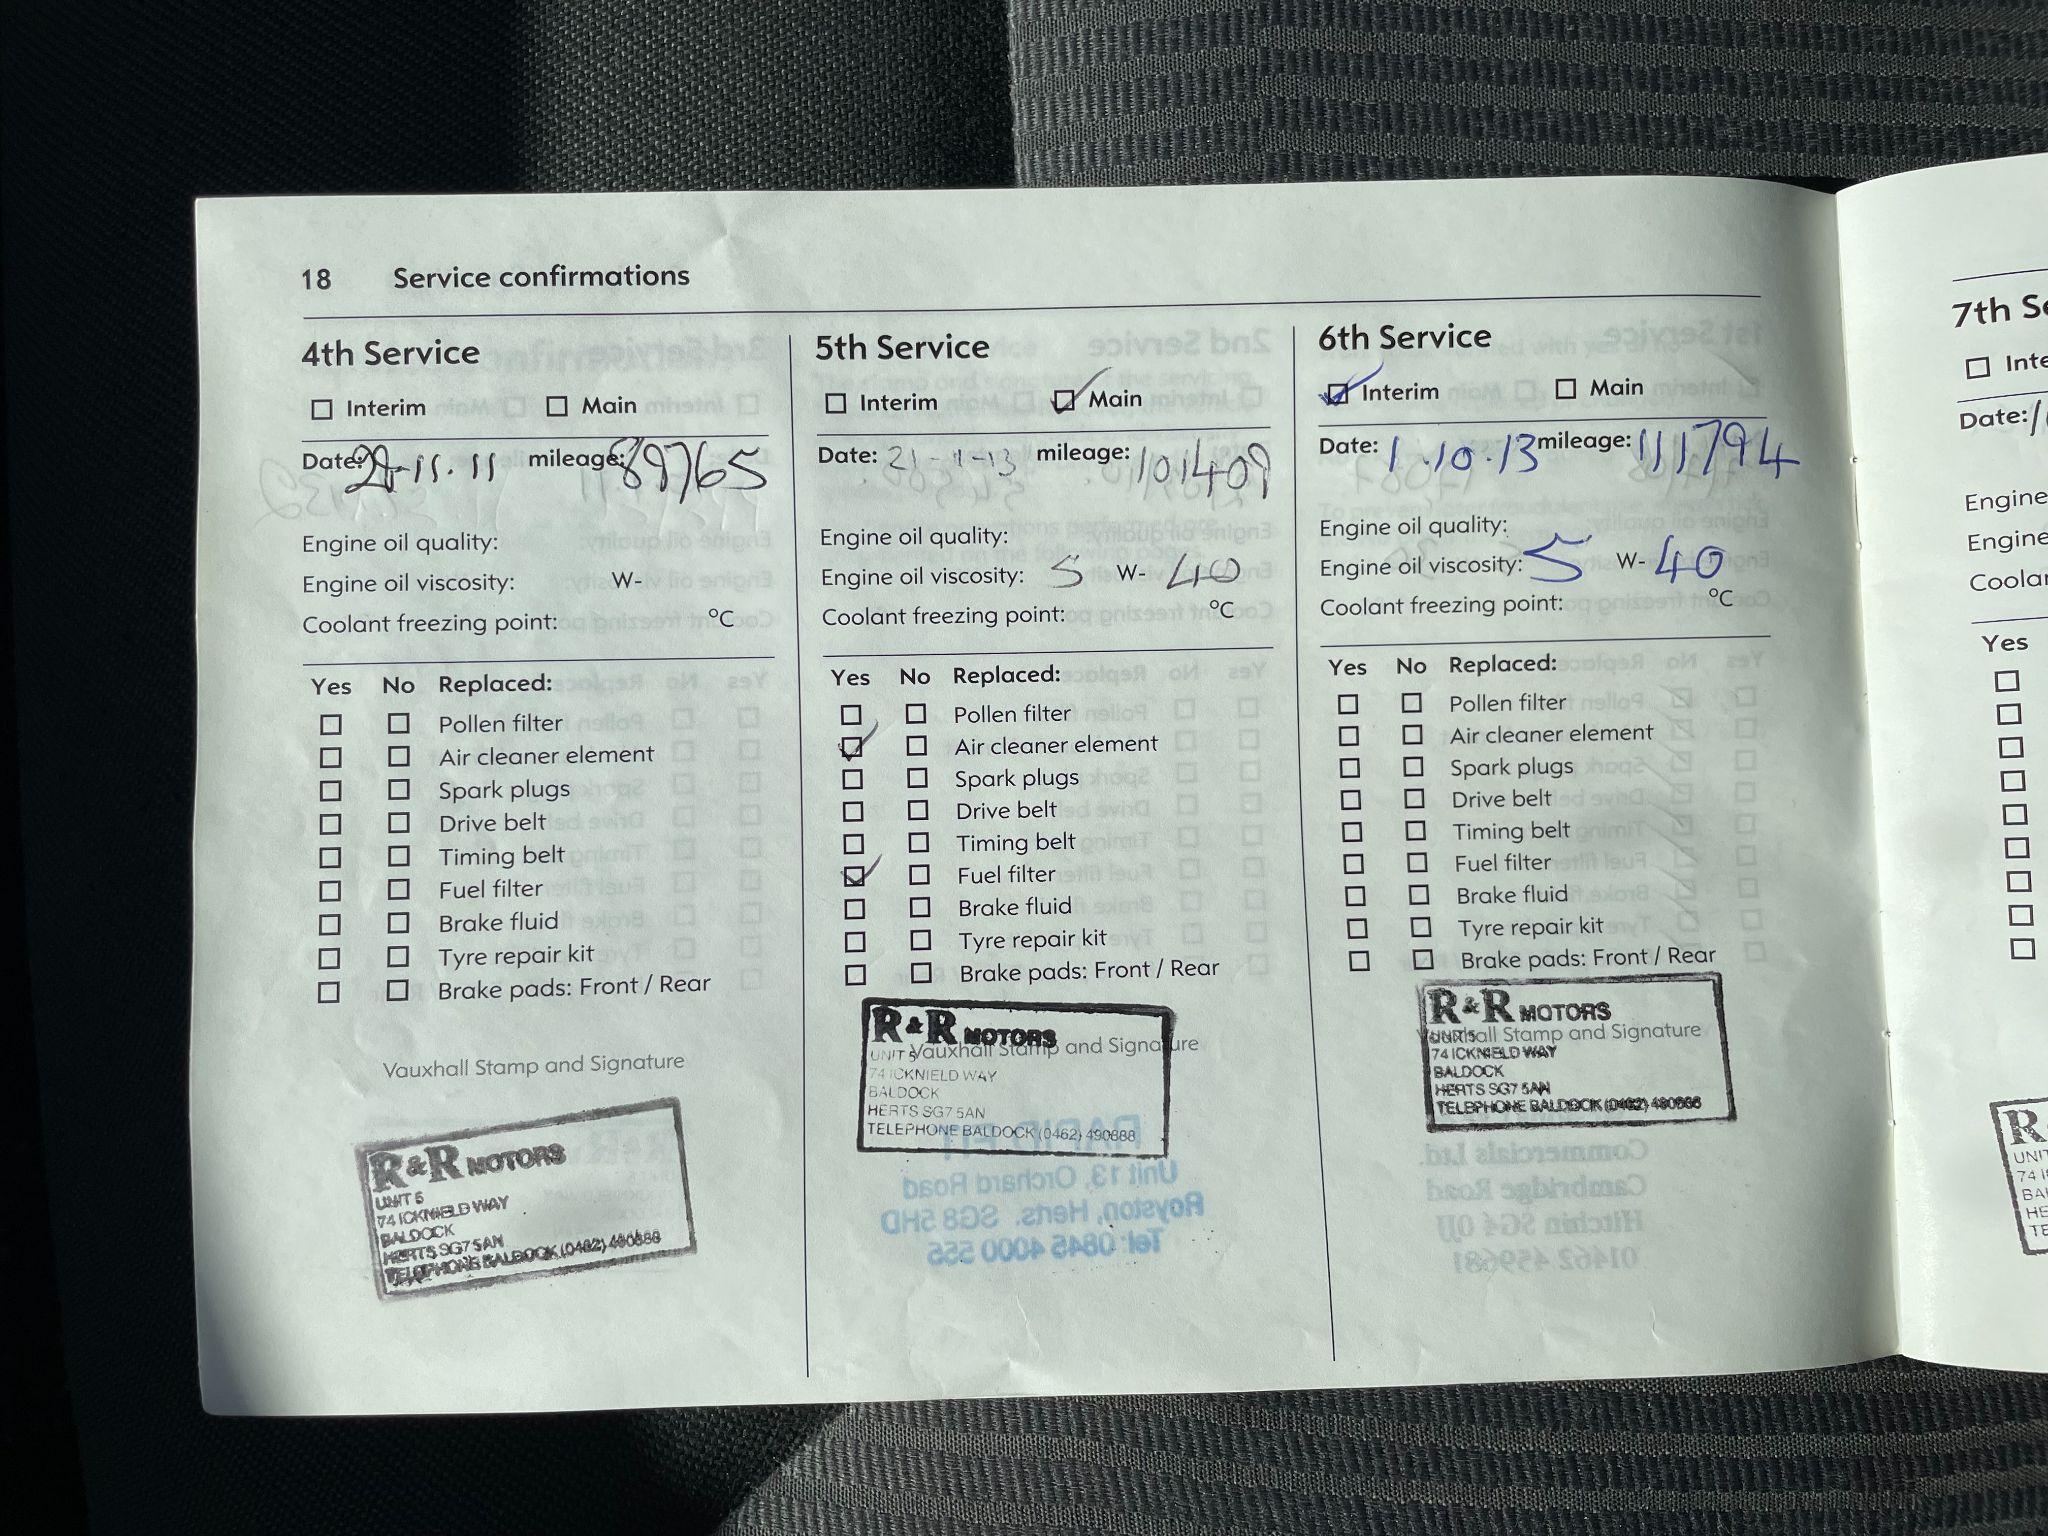 18 Service confirmations
4th Service
Interim Main
Date: -11.11 mileage: 89765
Engine oil quality:
Engine oil viscosity: W-
Coolant freezing point: °C
Yes No Replaced:
Pollen filter
Air cleaner element
Spark plugs
Drive belt
Timing belt
Fuel filter
Brake fluid
Tyre repair kit
Brake pads: Front / Rear
Vauxhall Stamp and Signature
R & R MOTORS
UNIT 5
74 ICKNIELD WAY
BALDOCK
HERTS SG7 5AN
TELEPHONE BALDOCK (0462) 490888
5th Service
Interim Main
Date: 21-1-13 mileage: 101409
Engine oil quality:
Engine oil viscosity: 5 W- 40
Coolant freezing point: °C
Yes No Replaced:
Pollen filter
Air cleaner element
Spark plugs
Drive belt
Timing belt
Fuel filter
Brake fluid
Tyre repair kit
Brake pads: Front / Rear
R & R MOTORS
Vauxhall Stamp and Signature
UNIT 5
74 ICKNIELD WAY
BALDOCK
HERTS SG7 5AN
TELEPHONE BALDOCK (0462) 490888
6th Service
Interim Main
Date: 1.10.13 mileage: 111794
Engine oil quality:
Engine oil viscosity: 5 W- 40
Coolant freezing point: °C
Yes No Replaced:
Pollen filter
Air cleaner element
Spark plugs
Drive belt
Timing belt
Fuel filter
Brake fluid
Tyre repair kit
Brake pads: Front / Rear
R & R MOTORS
Vauxhall Stamp and Signature
UNIT 5
74 ICKNIELD WAY
BALDOCK
HERTS SG7 5AN
TELEPHONE BALDOCK (0462) 490888
7th Se
Inte
Date:
Engine
Engine
Coolan
Yes
R
UNIT
74 I
BA
HE
TE